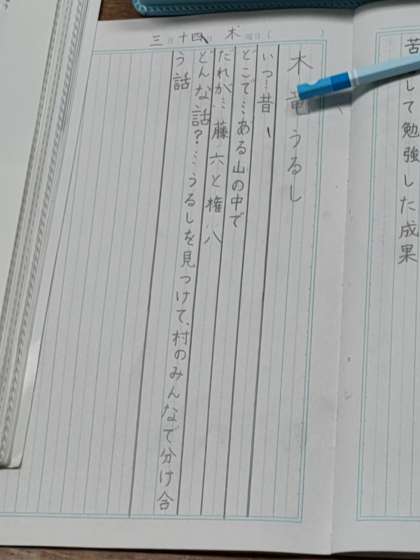 苦
して勉強した成果
三月十四日 木曜日( )
木竜うるし
いつ…昔
どこで…ある山の中で
だれが…藤六と権八
どんな話?…うるしを見つけて、村のみんなで分け合
う話